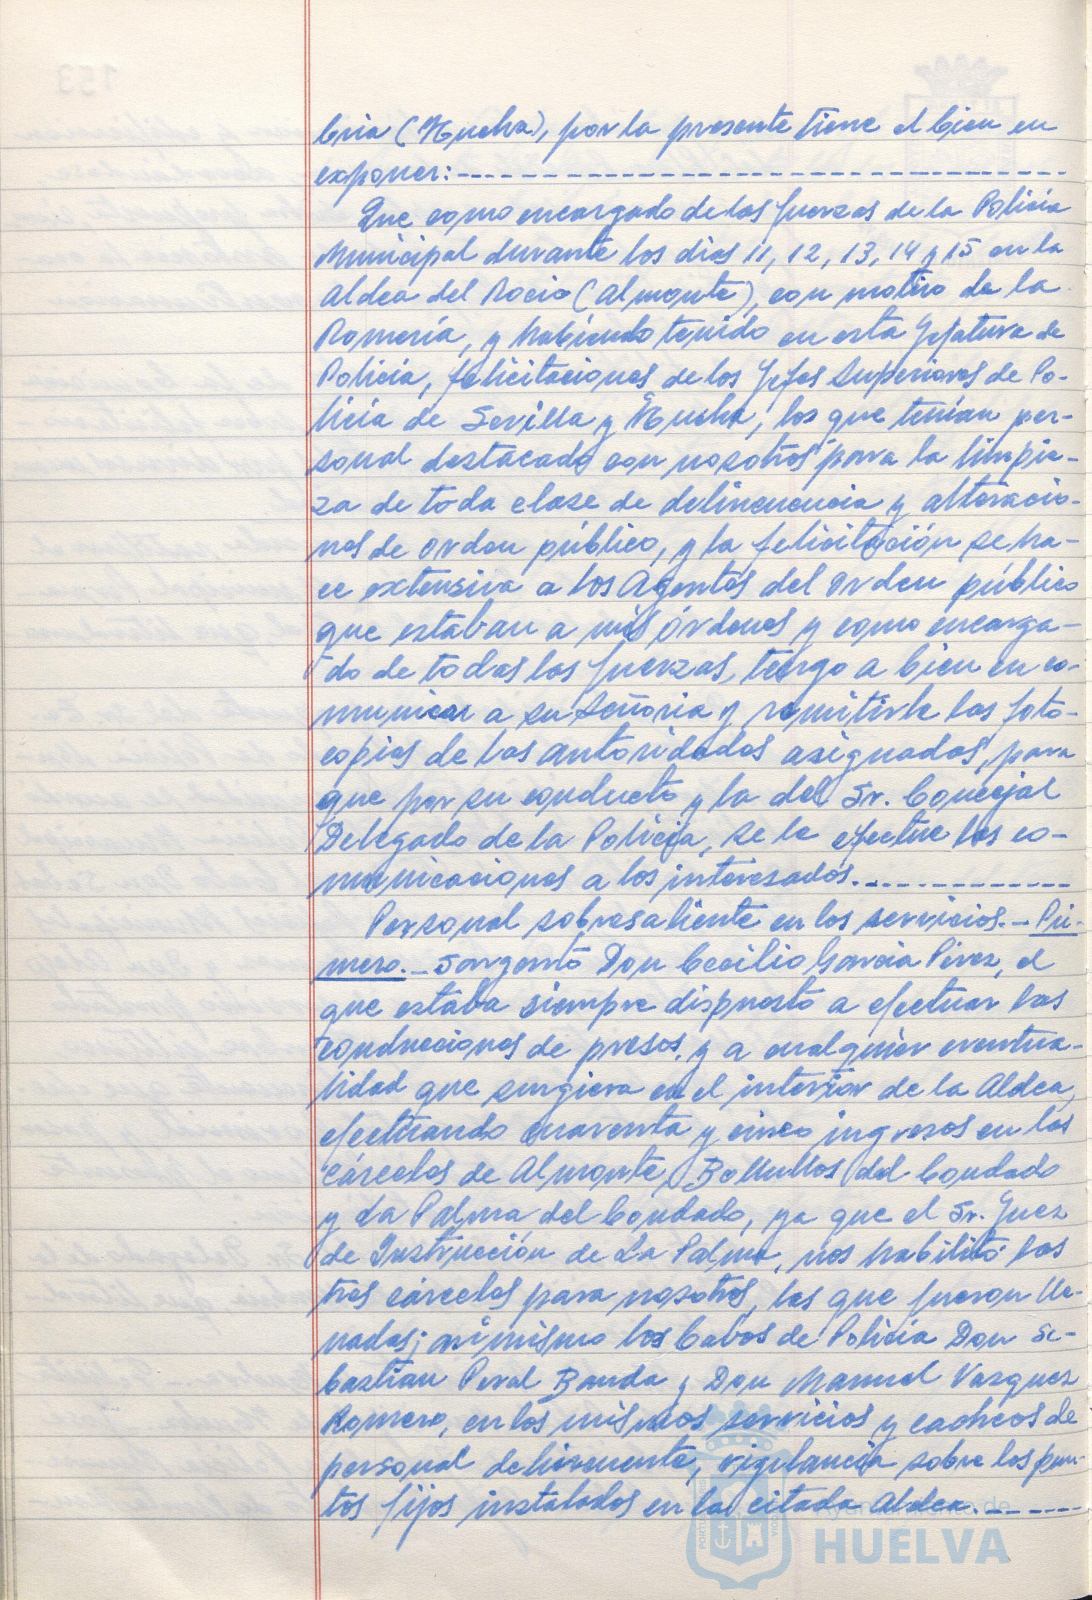 bria (Huelva), por la presente tiene el bien en
exponer:
Que como encargado de las fuerzas de la Policia
Municipal durante los dias 11, 12, 13, 14 y 15 en la
Aldea del Rocio (Almonte), con motivo de la
Romería, y habiendo tenido en esta Jefatura de
Policia, felicitaciones de los Jefes Superiores de Po-
licia de Sevilla y Huelva, los que tenian per-
sonal destacado con nosotros para la limpie-
za de toda clase de delincuencia y alteracio-
nes de orden público, y la felicitación se ha-
ce extensiva a los Agentes del orden público
que estaban a mis órdenes y como encarga-
do de todas las fuerzas, tengo a bien en co-
municar a su Señoria y remitirle las foto-
copias de las autoridades asignadas, para
que por su conducto y la del Sr. Concejal
Delegado de la Policia, se le efectue las co-
municaciones a los interesados.
Personal sobresaliente en los servicios.- Pri-
mero.- Sargento Don Cecilio Garcia Pérez, el
que estaba siempre dispuesto a efectuar las
conducciones de presos, y a cualquier eventua-
lidad que surgiera en el interior de la Aldea,
efectuando cuarenta y cinco ingresos en las
cárceles de Almonte, Bollullos del Condado
y La Palma del Condado, ya que el Sr. Juez
de Instrucción de La Palma, nos habilitó las
tres cárceles para nosotros, las que fueron lle-
nadas; asimismo los Cabos de Policia Don Se-
bastian Peral Banda y Don Manuel Vazquez
Romero, en los mismos servicios y cacheos de
personal delincuente, vigilancia sobre los pun-
tos fijos instalados en la citada Aldea.
Ayuntamiento de
HUELVA